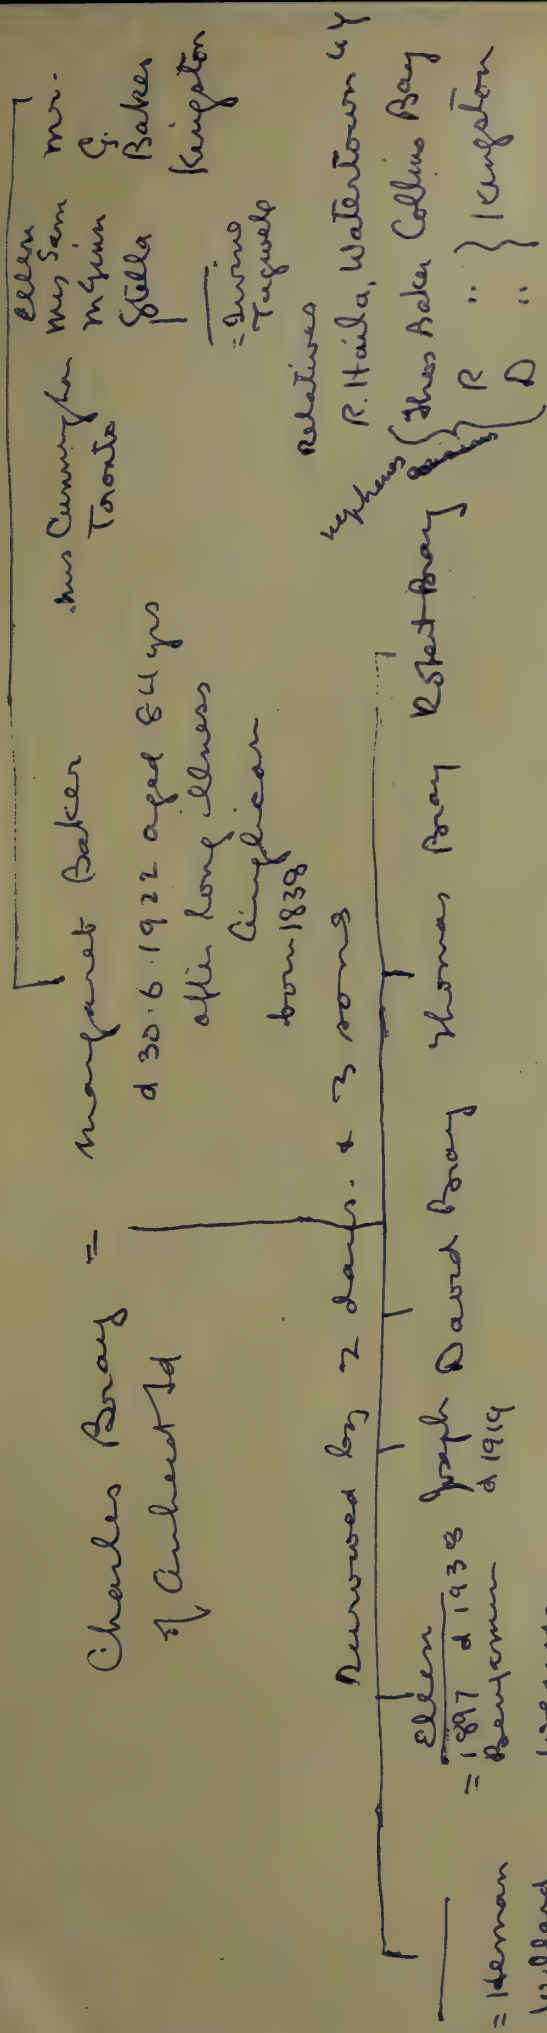 Charles Bray = Margaret Baker
of Amherst Id
d 30.6.1922 aged 84 yrs
after long illness
Anglican
born 1838
Mrs Cunningham
Toronto
Ellen
Mrs Sam
McGinn
Stella
Mr.
G.
Baker
Kingston
= Irvine
Tugwell
Relatives
R. Haila, Watertown NY
nephews { Thos Baker Collins Bay
R " } Kingston
D "
Survived by 2 daus. & 3 sons
= Heman
Willard
Ellen
= 1897 d 1938
Benjamin
Joseph
d 1919
David Bray
Thomas Bray
Robert Bray